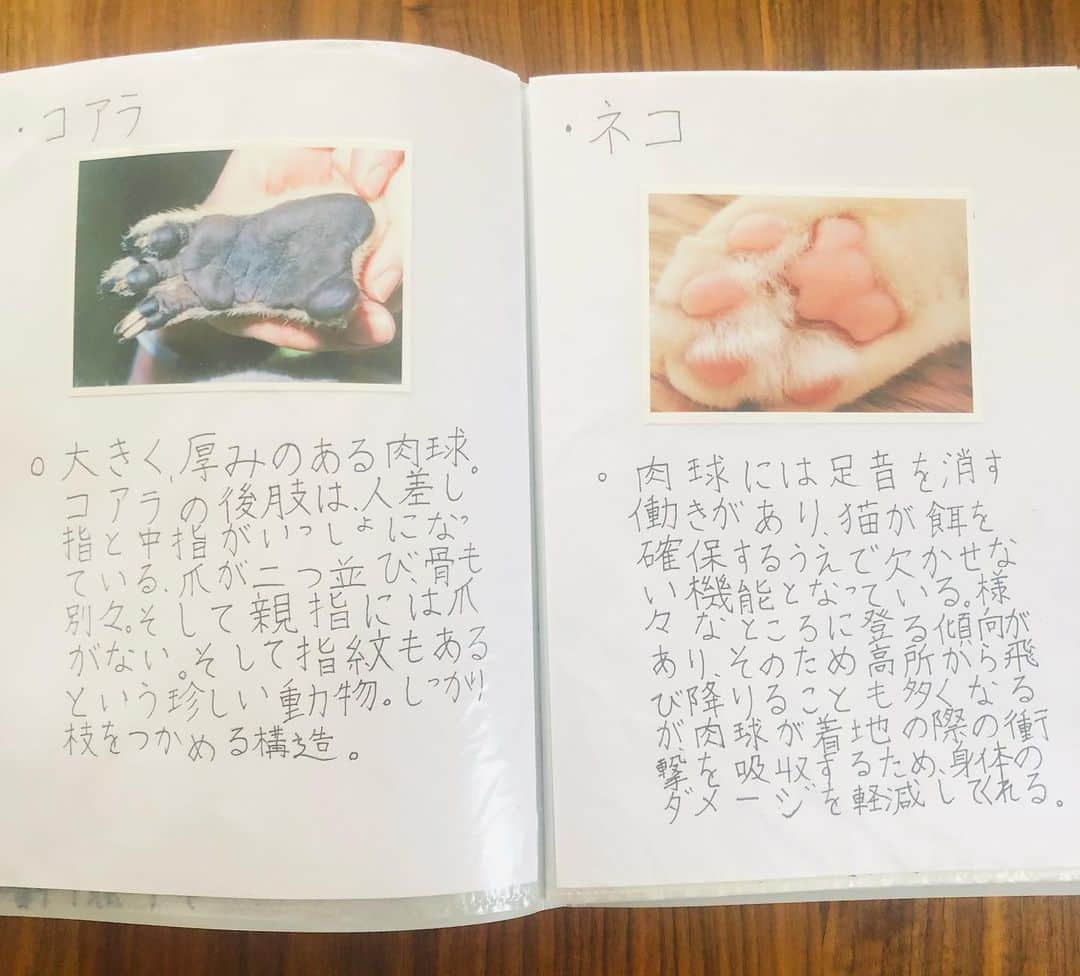 ・コアラ
○大きく、厚みのある肉球。
コアラの後肢は、人差し
指と中指がいっしょになっ
ている、爪が二つ並び、骨も
別々。そして親指には爪
がない。そして指紋もある
という珍しい動物。しっかり
枝をつかめる構造。
・ネコ
○肉球には足音を消す
働きがあり、猫が餌を
確保するうえで欠かせな
い機能となっている。様
々なところに登る傾向が
あり、そのため高所から飛
び降りることも多くなる
が、肉球が着地の際の衝
撃を吸収するため、身体の
ダメージを軽減してくれる。